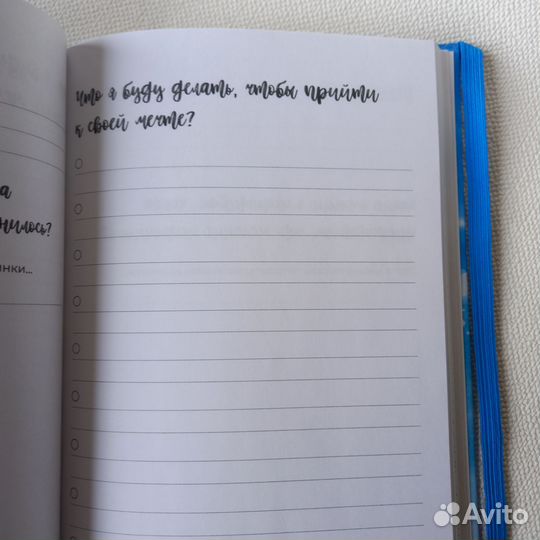 Что я буду делать, чтобы прийти
к своей мечте?
а
нилось?
инки...
Avito